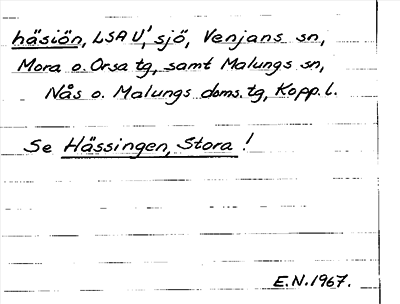 häsiön, LSA U', sjö, Venjans sn,
Mora o. Orsa tg, samt Malungs sn,
Nås o. Malungs doms. tg, Kopp. l.
Se Hässingen, Stora !
E.N. 1967.